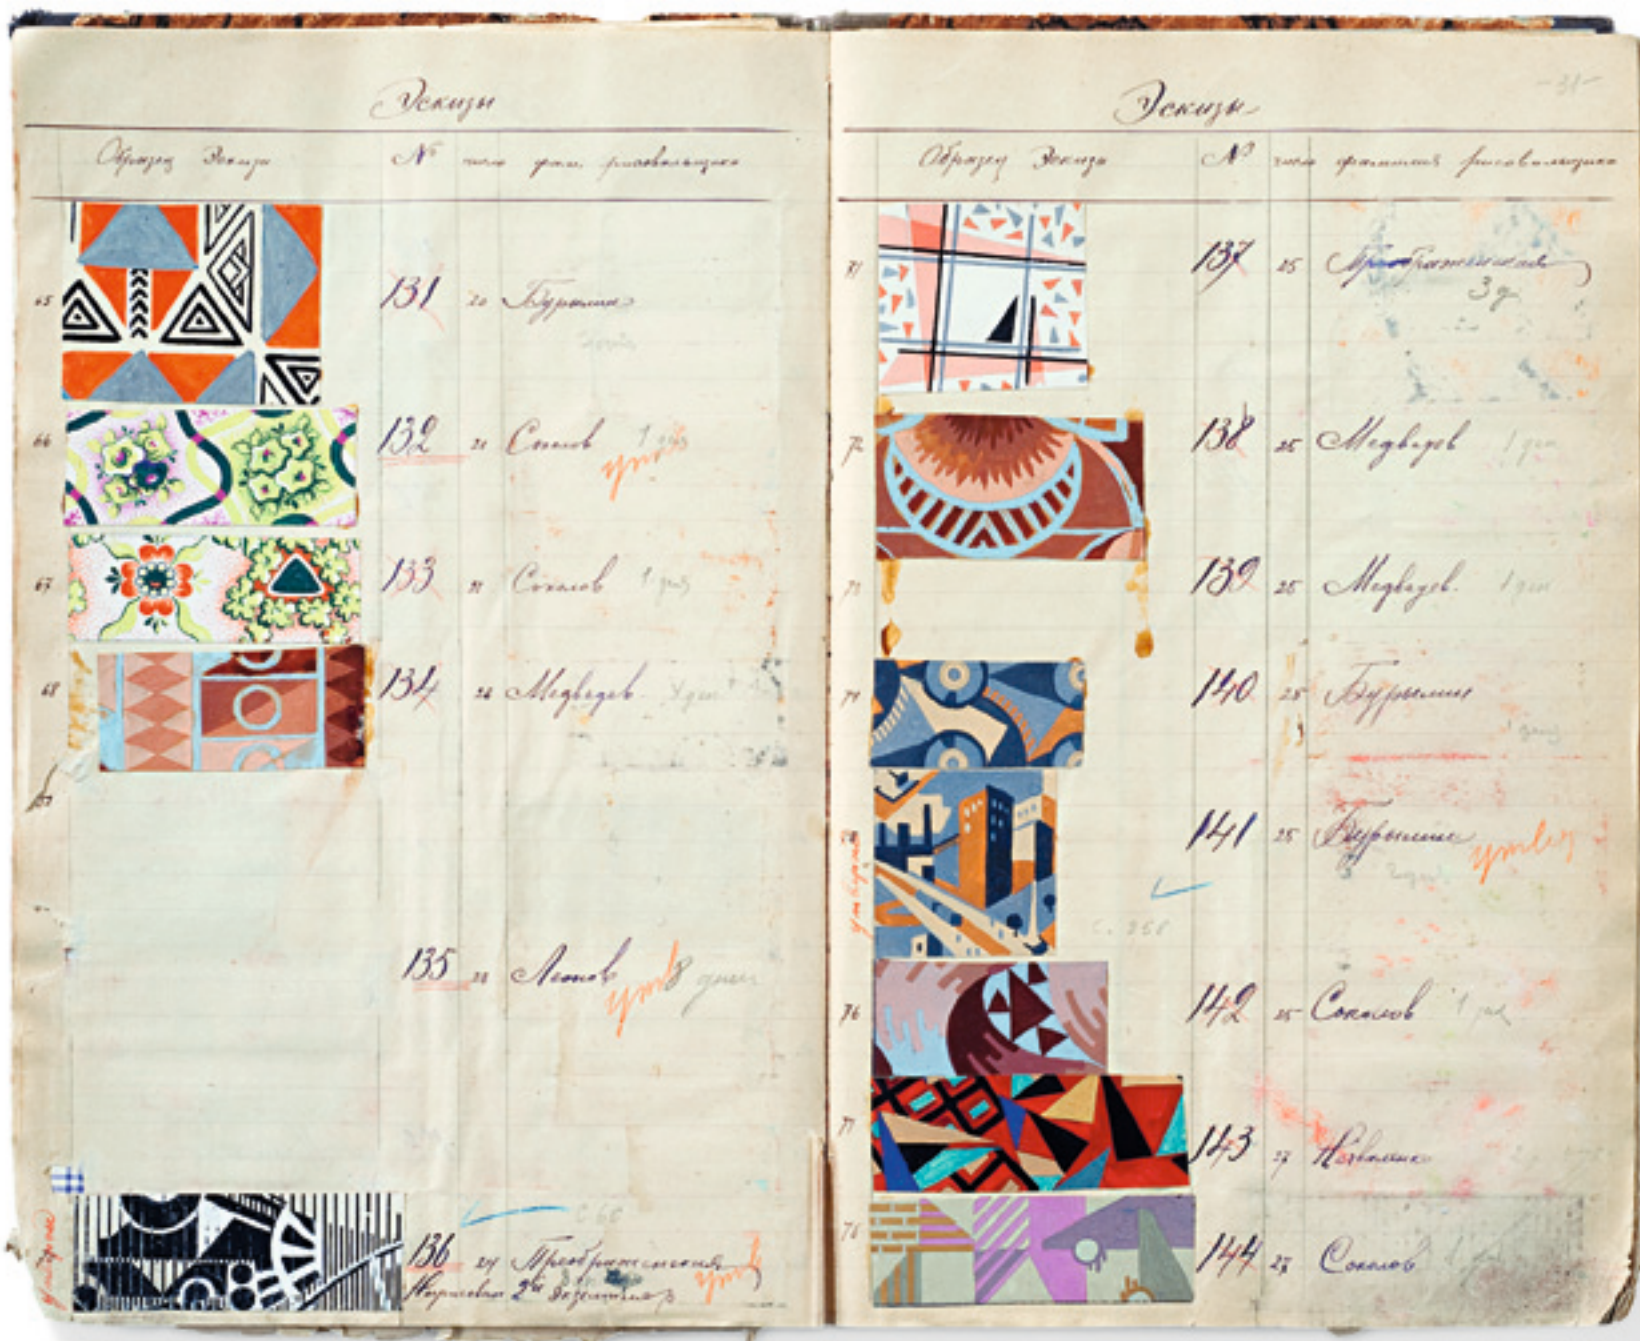 Эскизы
Образец Эскиза № число фам. рисовальщика
65 131 20 Бурылин
66 132 21 Соколов 1 день утв
67 133 21 Соколов 1 день
68 134 24 Медведев
135 24 Леонов утв 8 дней
136 24 Преображенская утв
Эскизы
-31-
Образец Эскиза № число фамилия рисовальщика
71 137 25 Преображенская
3 д
72 138 25 Медведев 1 ден
73 139 25 Медведев. 1 ден
74 140 25 Бурылин
1 день
141 25 Бурылин утв
76 142 25 Соколов
77 143 27
144 27 Соколов